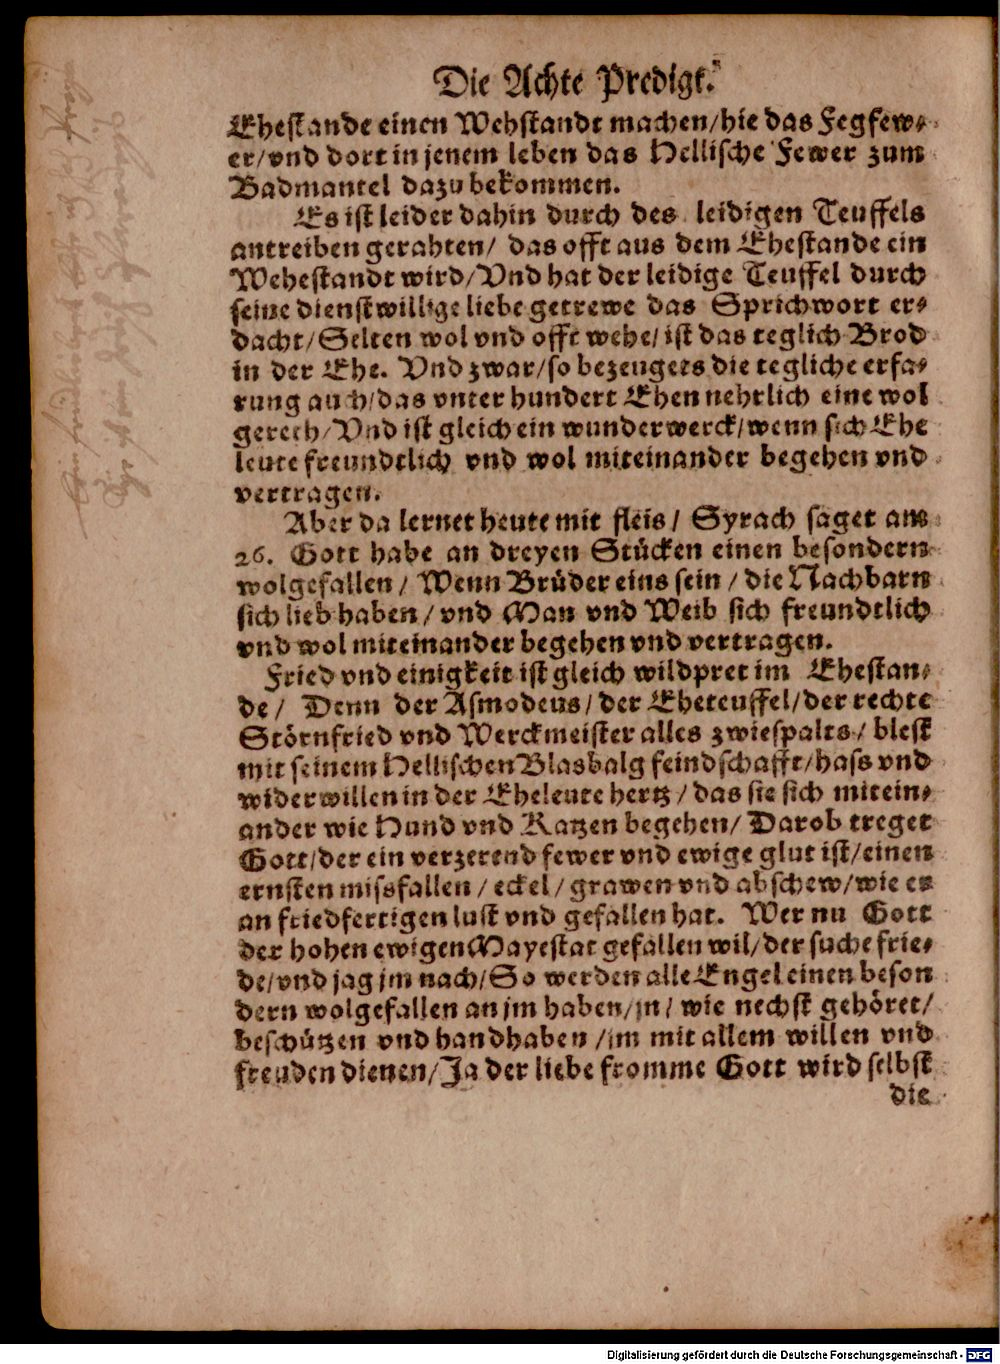 Die Achte Predigt.
Ehestande einen Wehstandt machen/hie das Fegfew⸗
er/vnd dort in jenem leben das Hellische Fewer zum
Badmantel dazu bekommen.
Es ist leider dahin durch des leidigen Teuffels
antreiben gerahten/ das offt aus dem Ehestande ein
Wehestandt wird/Vnd hat der leidige Teuffel durch
seine dienstwillige liebe getrewe das Sprichwort er⸗
dacht/Selten wol vnd offt wehe/ist das teglich Brod
in der Ehe. Vnd zwar/so bezeugets die tegliche erfa⸗
rung auch/das vnter hundert Ehen nehrlich eine wol
gereth/Vnd ist gleich ein wunderwerck/wenn sich Ehe
leute freundtlich vnd wol miteinander begehen vnd
vertragen.
Aber da lernet heute mit fleis/ Syrach saget am
26. Gott habe an dreyen Stücken einen besondern
wolgefallen/ Wenn Brüder eins sein/die Nachbarn
sich lieb haben/vnd Man vnd Weib sich freundtlich
vnd wol miteinander begehen vnd vertragen.
Fried vnd einigkeit ist gleich wildpret im Ehestan⸗
de/ Denn der Asmodeus/der Eheteuffel/der rechte
Störnfried vnd Werckmeister alles zwiespalts/ blest
mit seinem Hellischen Blasbalg feindschafft/hass vnd
widerwillen in der Eheleute hertz/das sie sich mitein⸗
ander wie Hund vnd Katzen begehen/ Darob treget
Gott/der ein verzerend fewer vnd ewige glut ist/einen
ernsten missfallen/eckel/grawen vnd abschew/wie er
an friedfertigen lust vnd gefallen hat. Wer nu Gott
der hohen ewigen Mayestat gefallen wil/der suche frie⸗
de/vnd jag jm nach/So werden alle Engel einen beson
dern wolgefallen an jm haben/jn/ wie nechst gehöret/
beschützen vnd handhaben/jm mit allem willen vnd
freuden dienen/Ja der liebe fromme Gott wird selbst
die
Digitalisierung gefördert durch die Deutsche Forschungsgemeinschaft - DFG